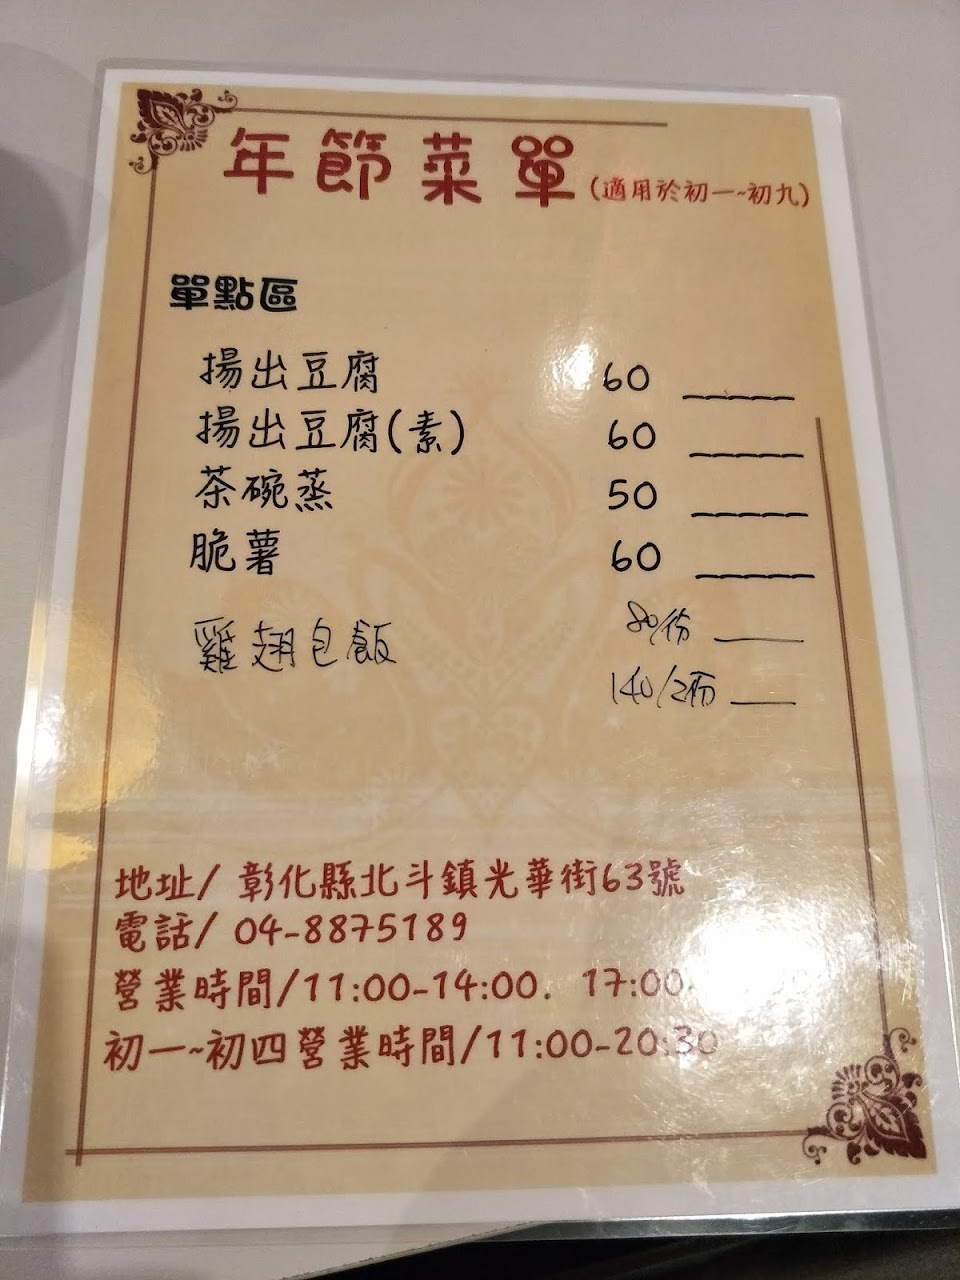 年節菜單(適用於初一~初九)
單點區
揚出豆腐 60 _____
揚出豆腐(素) 60 _____
茶碗蒸 50 _____
脆薯 60 _____
雞翅包飯 80/份 ___
140/2份 ___
地址/ 彰化縣北斗鎮光華街63號
電話/ 04-8875189
營業時間/11:00-14:00. 17:00-
初一~初四營業時間/11:00-20:30